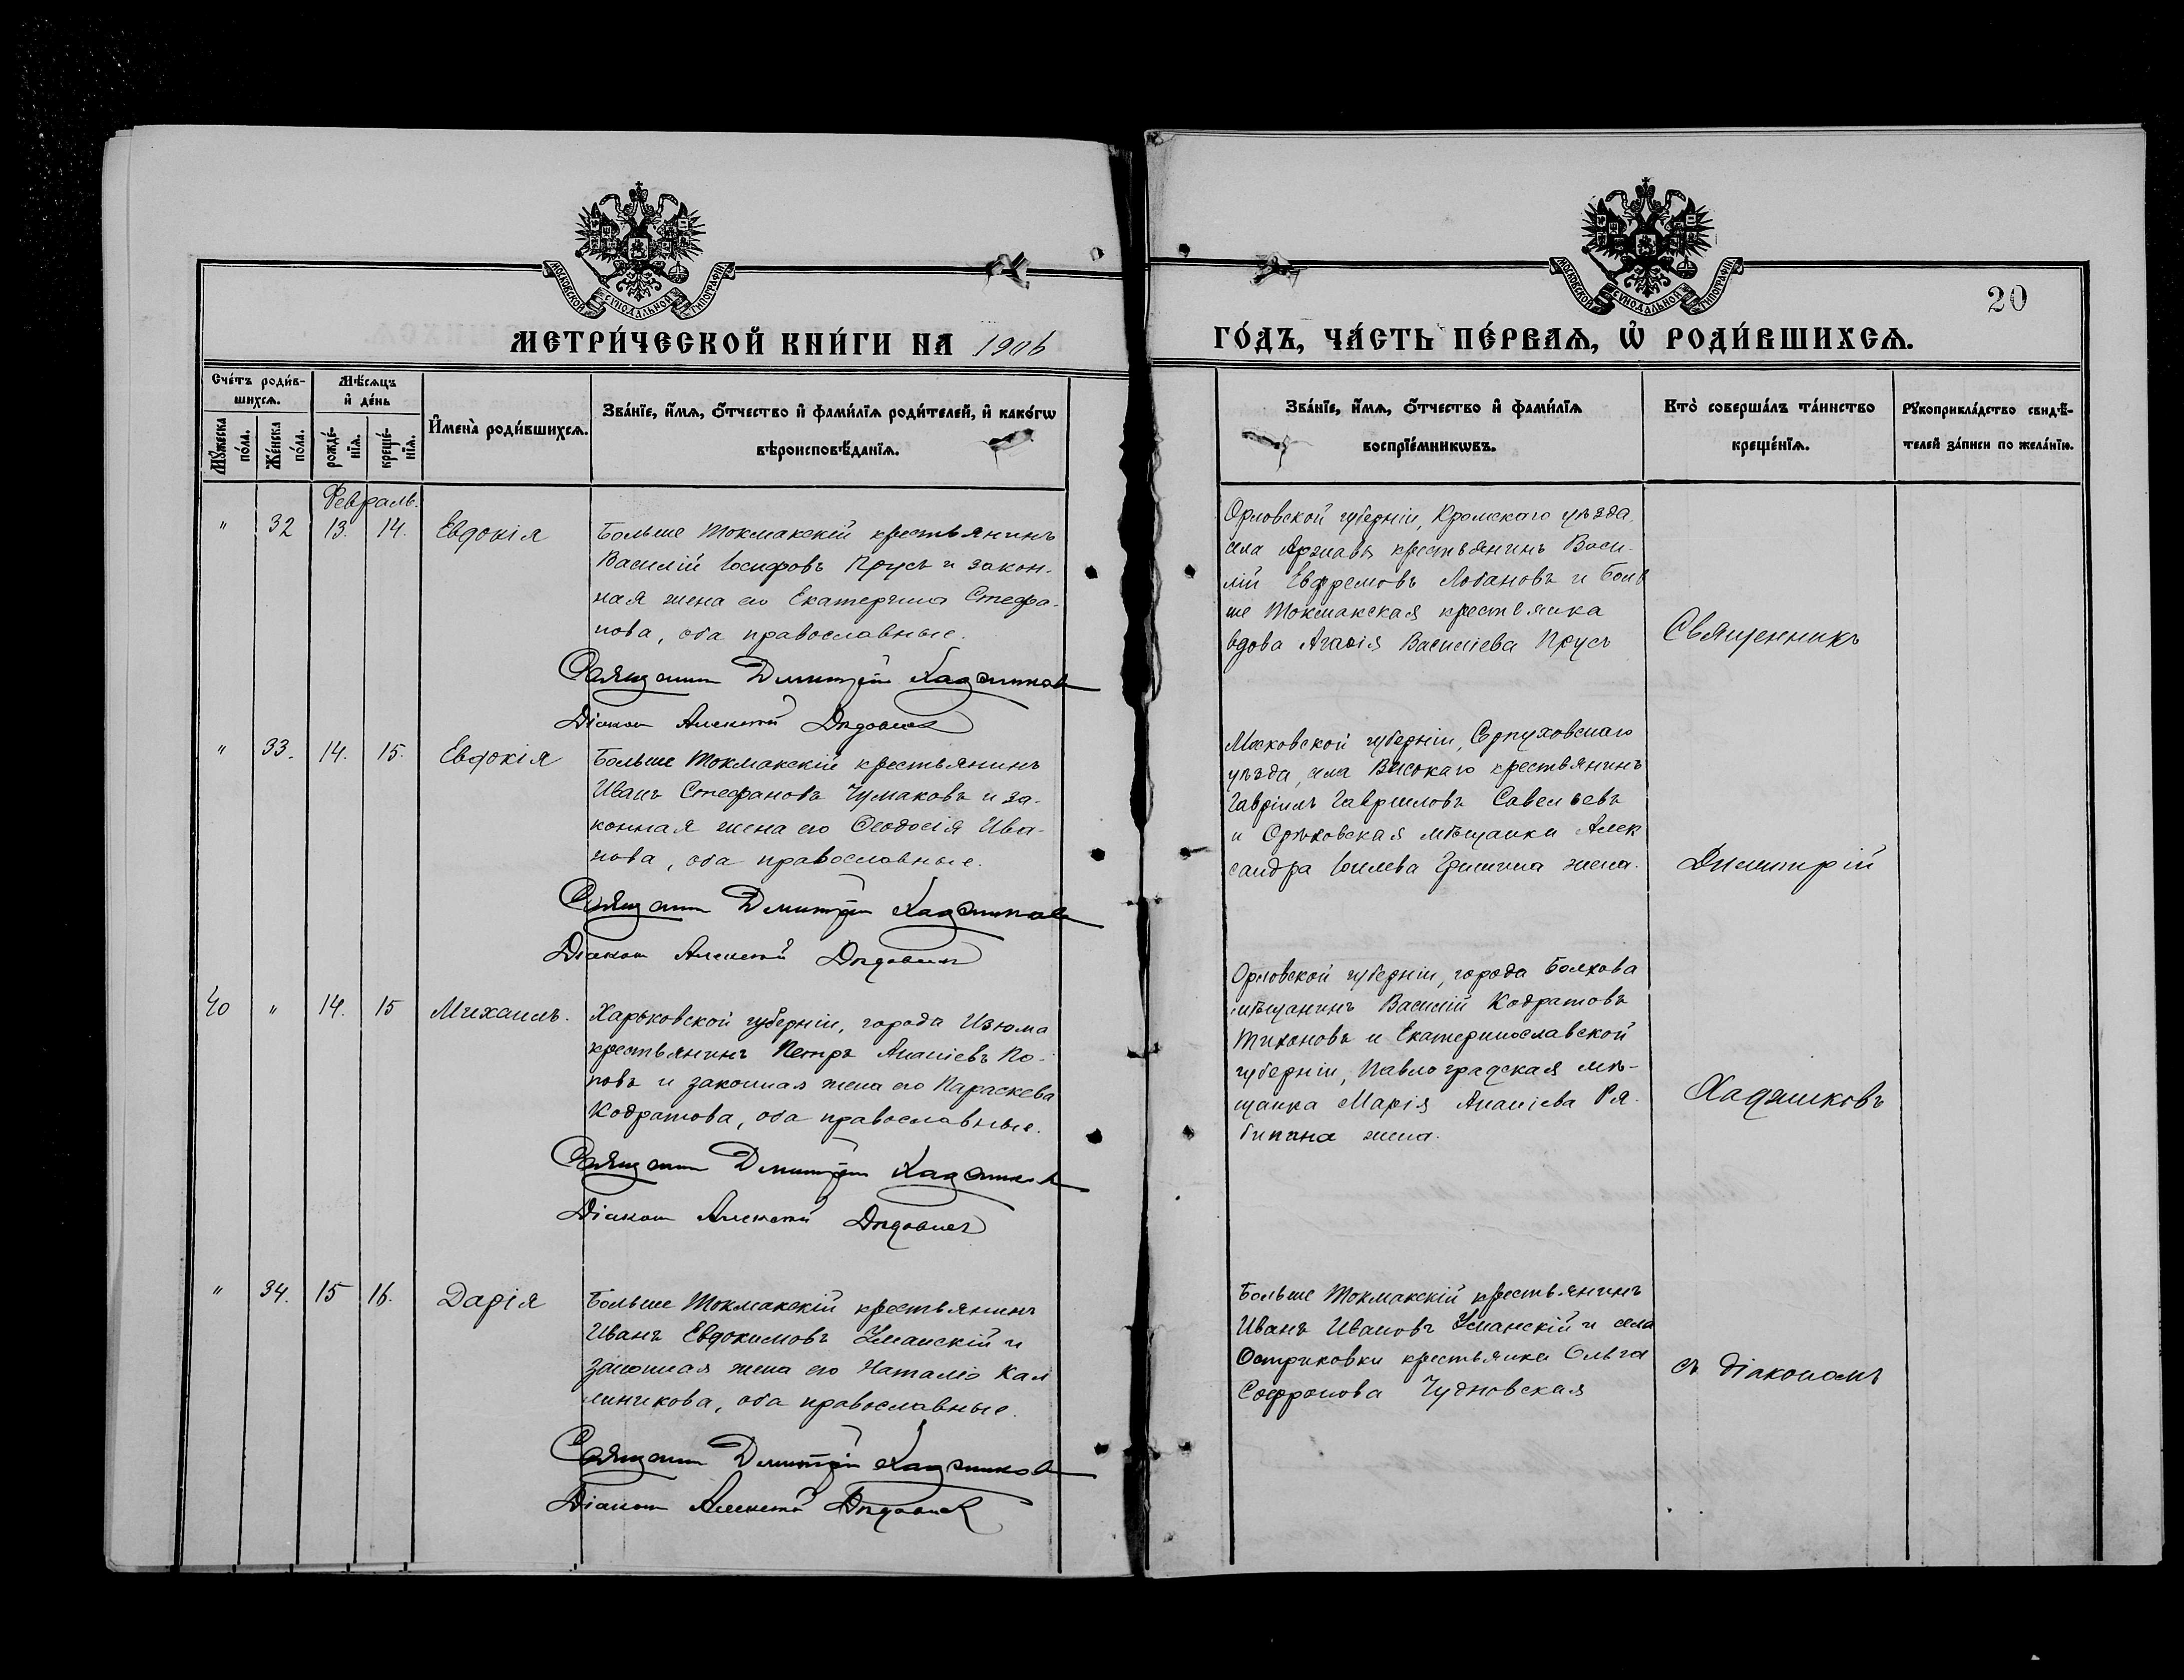 МОСКОВСКОЙ СѴНОДАЛЬНОЙ ТИПОГРАФІИ
МЕТРИ́ЧЕСКОЙ КНИ́ГИ НА 1906
Сче́тъ роди́в-
шихсѧ.
Мѣ́сѧцъ
и҆ де́нь
Мꙋ́жеска
по́ла.
Же́нска
по́ла.
рожде́-
нїѧ.
креще́-
нїѧ.
И҆мена̀ роди́вшихсѧ.
Зва́нїе, и҆́мѧ, ѻ҆́тчество и҆ фами́лїѧ роди́телей, и҆ како́гѡ
вѣроисповѣ́данїѧ.
Февраль.
" 32 13. 14. Евдокія
Больше Токмакскій крестьянинъ
Василій Іосифовъ Прусъ и закон-
ная жена его Екатерина Стефа-
нова, оба православные.
Священник Димитрій Хаджиков
Діакон Алексій
" 33. 14. 15. Евдокія
Больше Токмакскій крестьянинъ
Иванъ Стефановъ Чумаковъ и за-
конная жена его Ѳеодосія Ива-
нова, оба православные.
Священник Димитрій Хаджиков
Діакон Алексій
40 " 14. 15 Михаилъ.
Харьковской губерніи, города Изюма
крестьянинъ Петръ Ананіевъ По-
повъ и законная жена его Параскева
Кодратова, оба православные.
Священник Димитрій Хаджиков
Діакон Алексій
" 34. 15 16. Дарія
Больше Токмакскій крестьянинъ
Иванъ Евдокимовъ Уманскій и
законная жена его Наталія Кал
линикова, оба православные.
Священник Димитрій Хаджиков
Діакон Алексій
МОСКОВСКОЙ СѴНОДАЛЬНОЙ ТИПОГРАФІИ
20
ГО́ДЪ, ЧА́СТЬ ПЕ́РВАѦ, Ѡ҆ РОДИ́ВШИХСѦ.
Зва́нїе, и҆́мѧ, ѻ҆́тчество и҆ фами́лїѧ
воспрїе́мникѡвъ.
Кто̀ соверша́лъ та́инство
креще́нїѧ.
Рꙋкоприкла́дство свидѣ́-
телей за́писи по жела́нїю.
Орловской губерніи, Кромскаго уѣзда,
села крестьянинъ Васи-
лій Евфремовъ Лобановъ и Боль
ше Токмакская крестьянка
вдова Агаѳія Василіева Прусъ
Московской губерніи, Серпуховскаго
уѣзда, села Высокаго крестьянинъ
Гавріилъ Гавриловъ Савельевъ
и Орѣховская мѣщанки Алек
сандра жена.
Орловской губерніи, города Болхова
мѣщанинъ Василій Кодратовъ
Тихоновъ и Екатеринославской
губерніи, Павлоградская мѣ-
щанка Марія Ананіева Ря-
жена.
Больше Токмакскій крестьянинъ
Иванъ Ивановъ Уманскій и села
Остриковки крестьянка Ольга
Софронова Чудновская
Священникъ
Димитрій
Хаджиковъ
съ діакономъ